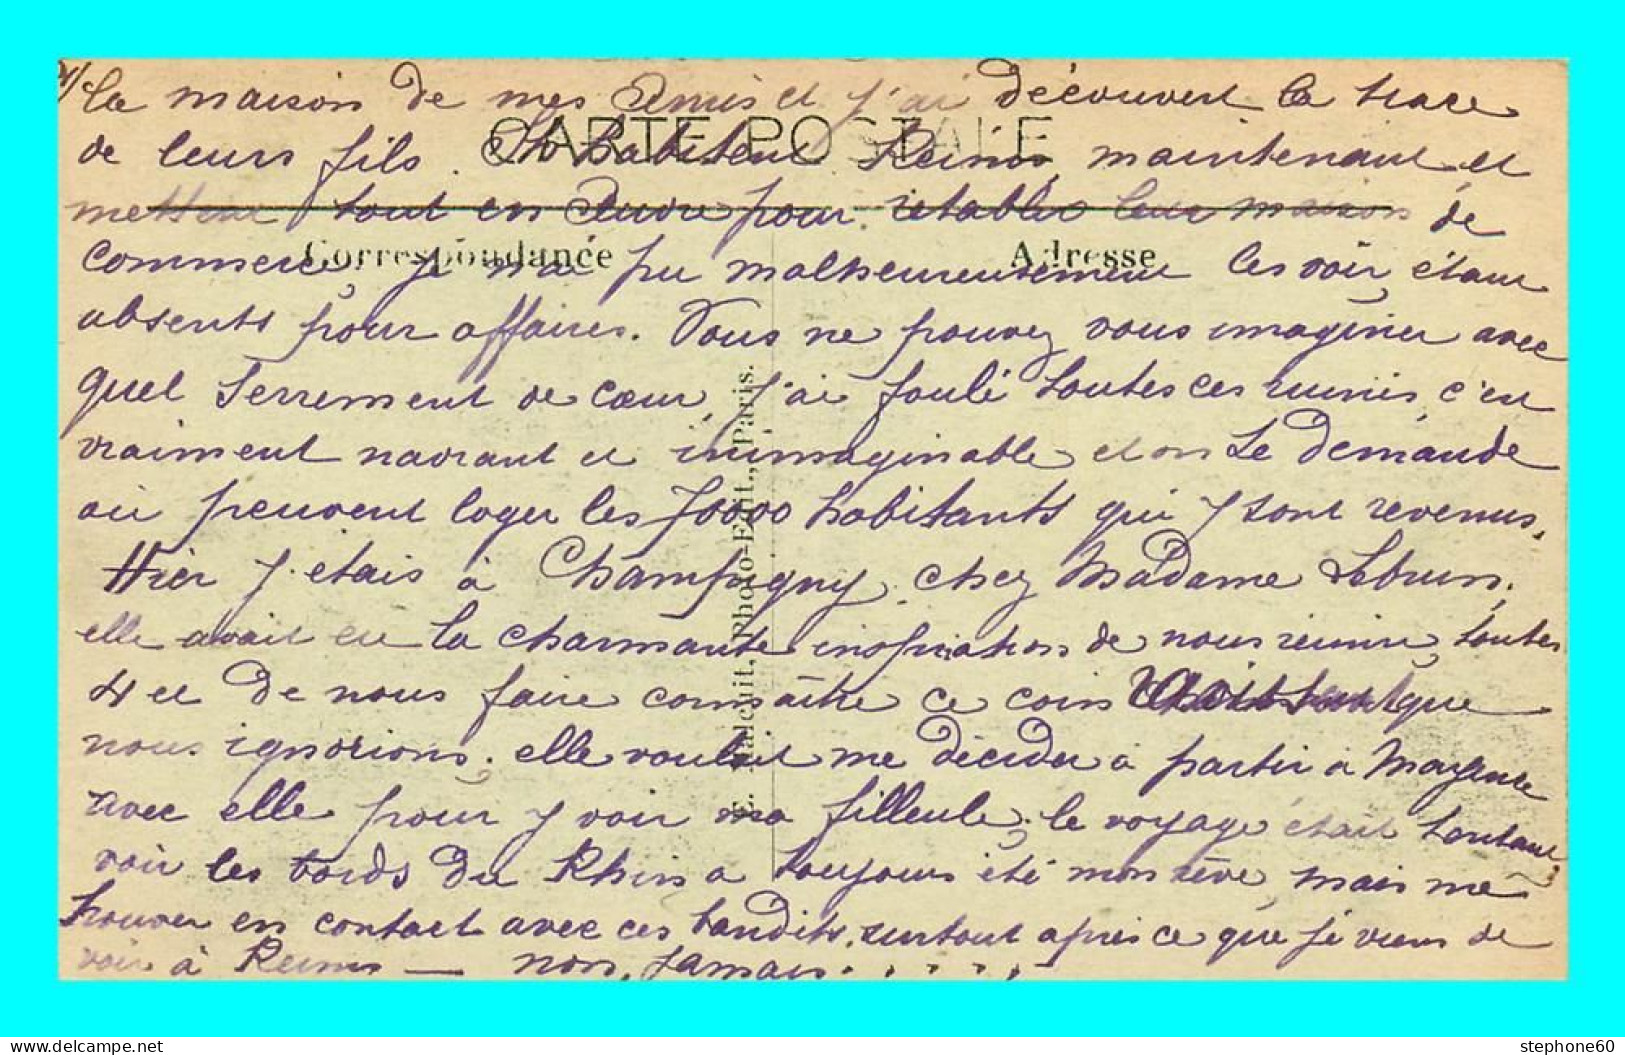 la maison de mes amis et j'ai découvert la trace
CARTE POSTALE
de leurs fils. Ils habitent Reims, maintenant et
mettent tout en œuvre pour rétablir leur maison de
Correspondance
Adresse
commerce, je n'ai pu malheureusement les voir, étant
absents pour affaires. Vous ne pouvez vous imaginer avec
quel serrement de cœur, j'ai foulé toutes ces ruines, c'est
vraiment navrant et inimaginable et on se demande
où peuvent loger les 70000 habitants qui y sont revenus.
Hier j'étais à Champigny, chez Madame Lebrun,
elle avait eu la charmante inspiration de nous réunir, toutes
4 et de nous faire connaître ce coin que
nous ignorions, elle voulait me décider à partir à Mayence
avec elle pour y voir ma filleule, le voyage était tentant
voir les bords du Rhin a toujours été mon rêve, mais me
trouver en contact avec ces bandits, surtout après ce que je viens de
voir à Reims — non, jamais.....
Phot-Edit., Paris.
stephone60
www.delcampe.net